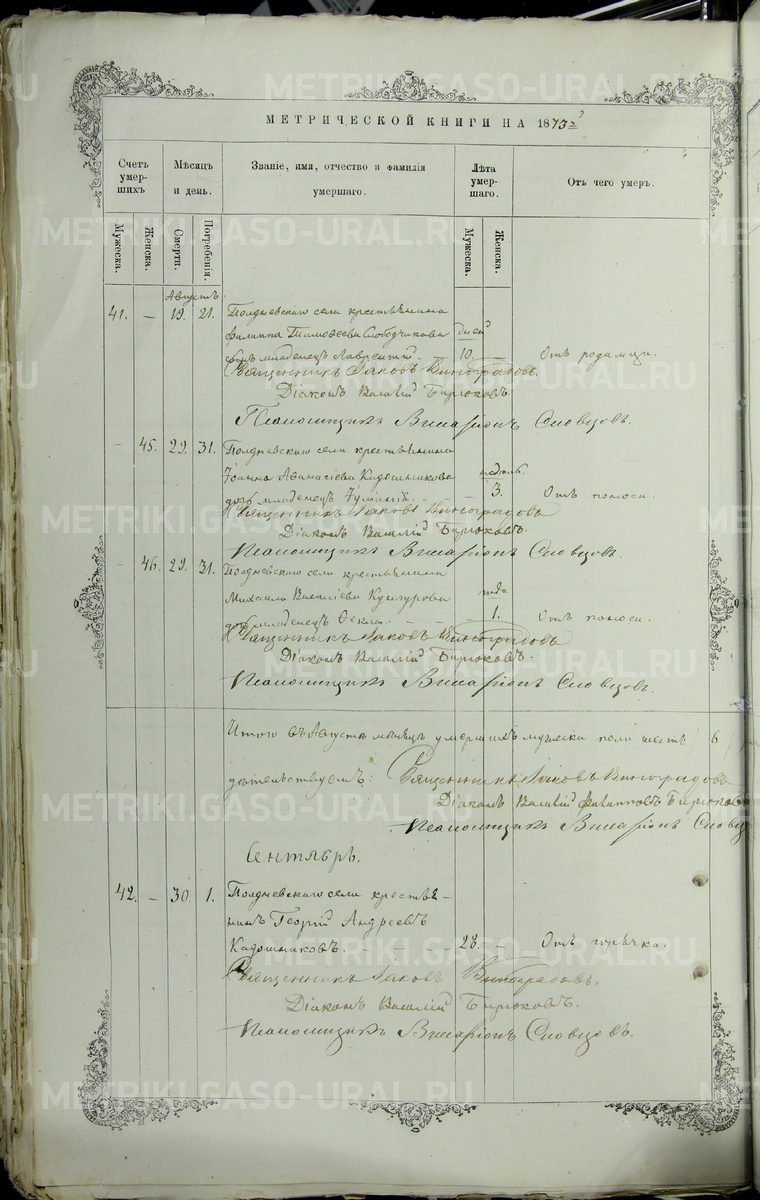 МЕТРИЧЕСКОЙ КНИГИ НА 1873
Счетъ умер-шихъ
Мѣсяцъ и день.
Званіе, имя, отчество и фамилія умершаго.
Лѣта умер-шаго.
Отъ чего умеръ.
Мужеска.
Женска.
Смерти.
Погребенія.
Мужеска.
Женска.
Августъ.
41. — 19. 21. Полдневскаго села крестьянина
Филиппа Тимоѳеева Слободчикова дней
сынъ младенецъ Лаврентій. — 10. — Отъ родимца.
Священникъ Іаковъ Виноградовъ.
Діаконъ Василій Бирюковъ
Псаломщикъ Виссаріонъ Словцовъ.
— 45. 29. 31. Полдневскаго села крестьянина
Іоанна Аѳанасіева Кадошникова недѣль
дочь младенецъ Іуліанія. — — 3. Отъ поноса.
Священникъ Іаковъ Виноградовъ
Діаконъ Василій Бирюковъ.
Псаломщикъ Виссаріонъ Словцовъ.
— 46. 29. 31. Полдневскаго села крестьянина
Михаила Василіева Кунгурова года
дочь младенецъ Ѳекла. — — 1. Отъ поноса.
Священникъ Іаковъ Виноградовъ
Діаконъ Василій Бирюковъ.
Псаломщикъ Виссаріонъ Словцовъ.
Итого въ Августѣ мѣсяцѣ умершихъ мужеска пола шесть / 6 /
дѣтельствуемъ: Священникъ Іаковъ Виноградовъ
Діаконъ Василій Филипповъ Бирюковъ
Псаломщикъ Виссаріонъ Словц
Сентябрь.
42. — 30. 1. Полдневскаго села крестья-
нинъ Георгій Андреевъ
Кадошниковъ. — — — 28. — Отъ горячки.
Священникъ Іаковъ Виноградовъ.
Діаконъ Василій Бирюковъ.
Псаломщикъ Виссаріонъ Словцовъ.
METRIKI.GASO-URAL.RU